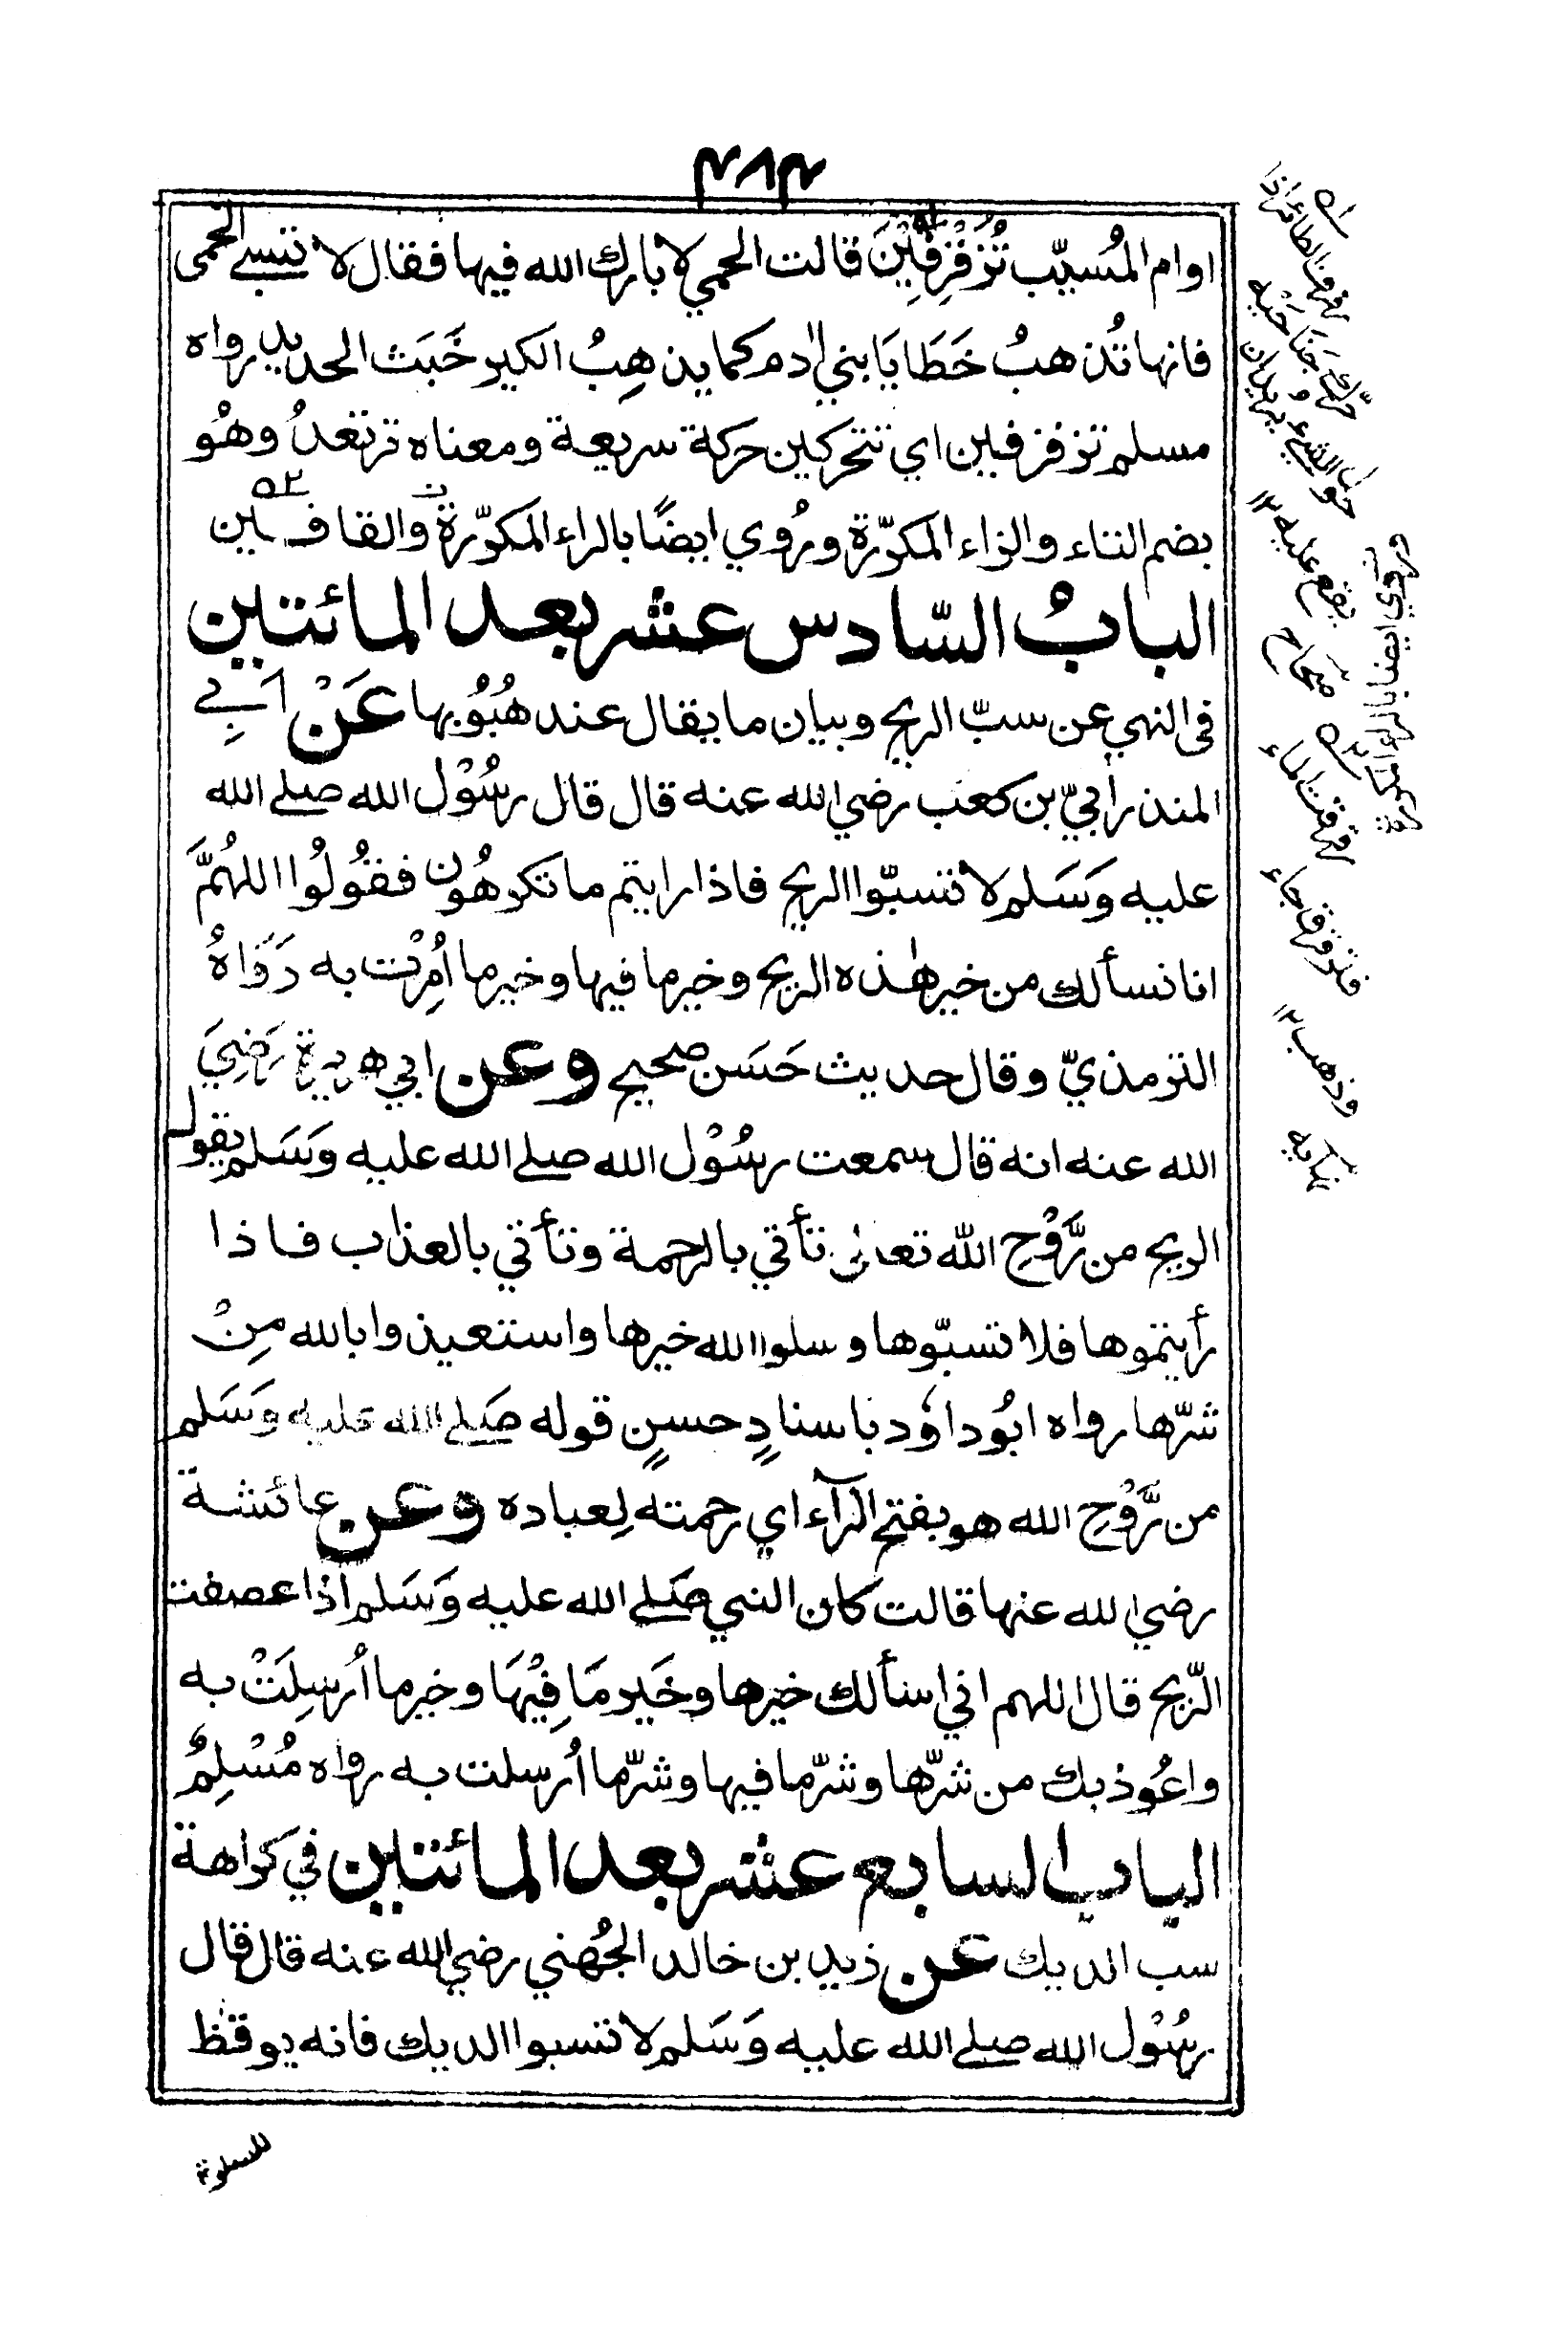 ٤٧٤
او ام المُسيّب تُزَفْزِفِيْنَ قالت الحمي لا بارك الله فيها فقال لا تسبي الحمى
فانها تُذهبُ خَطَايَا بني اٰدم كما يذهِبُ الكير خَبَث الحديد رواه
مسلم تزفزفين اي تتحركين حركة سريعة ومعناه ترتعدُ وهُو
بضم التاء والزاء المكرّرة ورُوي ايضًا بالراء المكرّرة والقافين
البابُ السّادس عشر بعد المائتين
فى النهي عن سبّ الريح وبيان ما يقال عند هُبُوْبها عَنْ أبِي
المنذر أبيّ بن كعب رضي الله عنه قال قال رسُوْل الله صلے الله
عليه وَسَلم لا تسبّوا الريح فاذا رايتم ما تكرهُون فقُولُوا اللهُمَّ
انا نسألك من خير هٰذه الريح وخير ما فيها وخير ما اُمِرْت به رَوَاهُ
الترمذيّ وقال حديث حَسَن صحيح وعن ابي هريرة رَضِيَ
الله عنه انه قال سمعت رسُوْل الله صلے الله عليه وَسَلم يقول
الريح من رَّوْحِ الله تعالى تأتي بالرحمة وتأتي بالعذاب فاذا
رأيتموها فلا تسبّوها وسلوا الله خيرها واستعيذوا بالله مِنْ
شرّها رواه ابُو داوٗد باسنادٍ حسنٍ قوله صَلے الله عليه وَسَلم
من رَّوْحِ الله هو بفتح الرآء اي رحمته لِعباده وعن عائشة
رضي الله عنها قالت كان النبي صَلے الله عليه وَسَلم اذا عصفت
الرّيح قال اللهم اني اسألك خيرها وخَير مَا فِيْهَا وخير ما اُرسِلَتْ به
واعُوذ بك من شرّها وشرّ ما فيها وشرّ ما اُرسلت به رواه مُسْلِمٌ
الباب السابع عشر بعد المائتين في كراهة
سب الديك عن زيد بن خالد الجُهني رضي الله عنه قال قال
رسُوْل الله صلے الله عليه وَسَلم لا تسبوا الديك فانه يوقظ
للصلوة
رفرف الطائر اذا
حرّك جَنَاحَيْه
حول الشيء يريد ان
يقع عليه ١٢
صحاح
وروي ايضا بالراء المكررة
رقرقت الماء
فترقرق جاء
وذهب ١٢